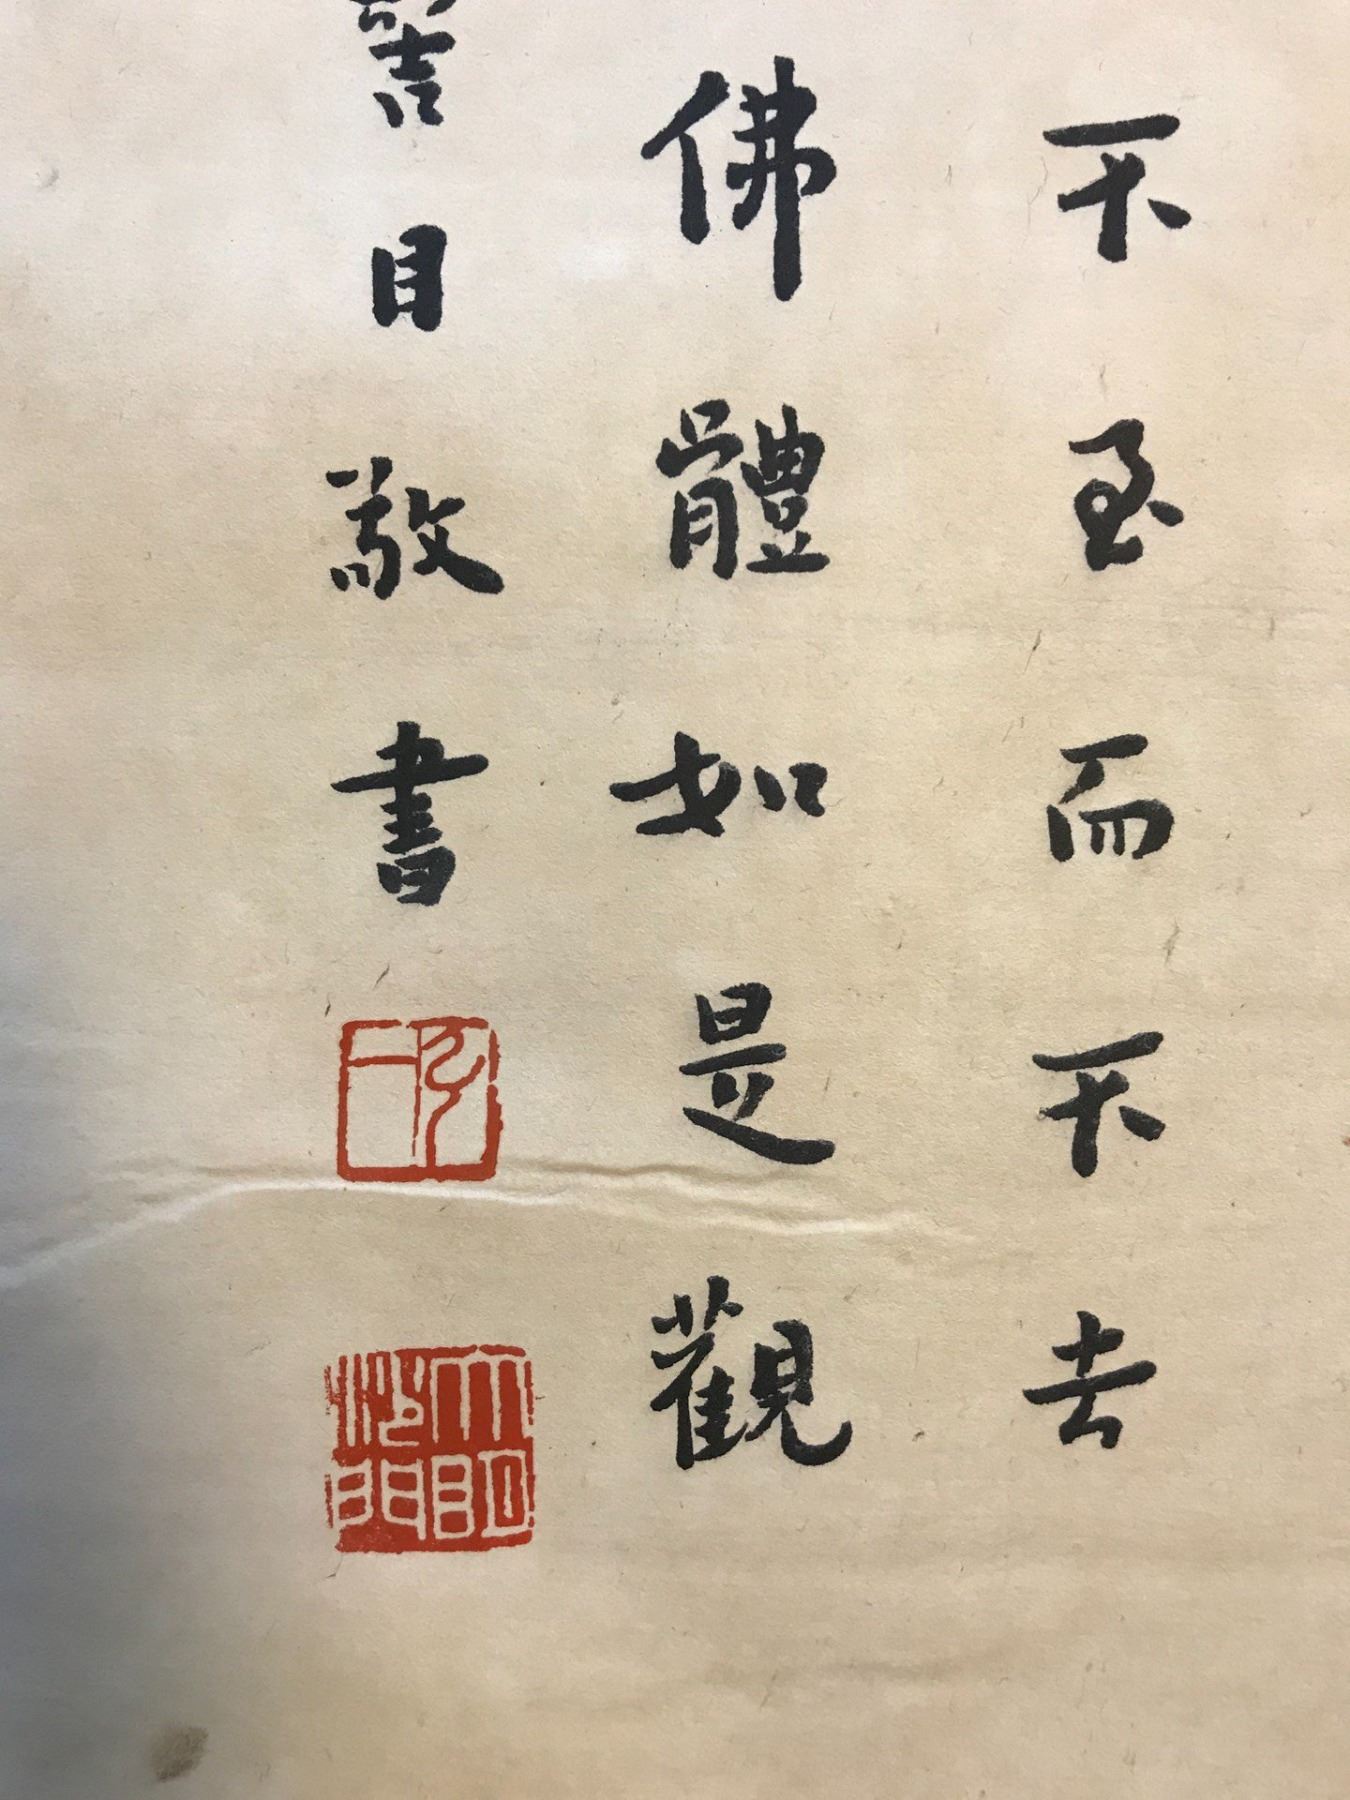 不至而不去
佛體如是觀
目敬書